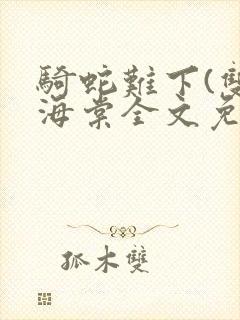 騎蛇難下(雙
海棠全文免
孤木雙